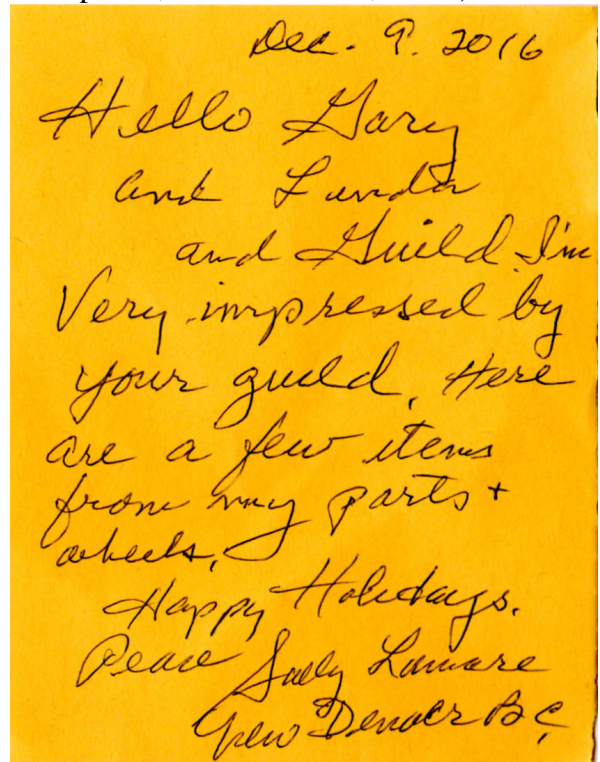 Dec. 9. 2016
Hello Gary
and Lunda
and Guild I'm
Very impressed by
your guild. Here
are a few items
from my parts +
wheels.
Happy Holidays.
Peace Sally Lamare
New Denver BC